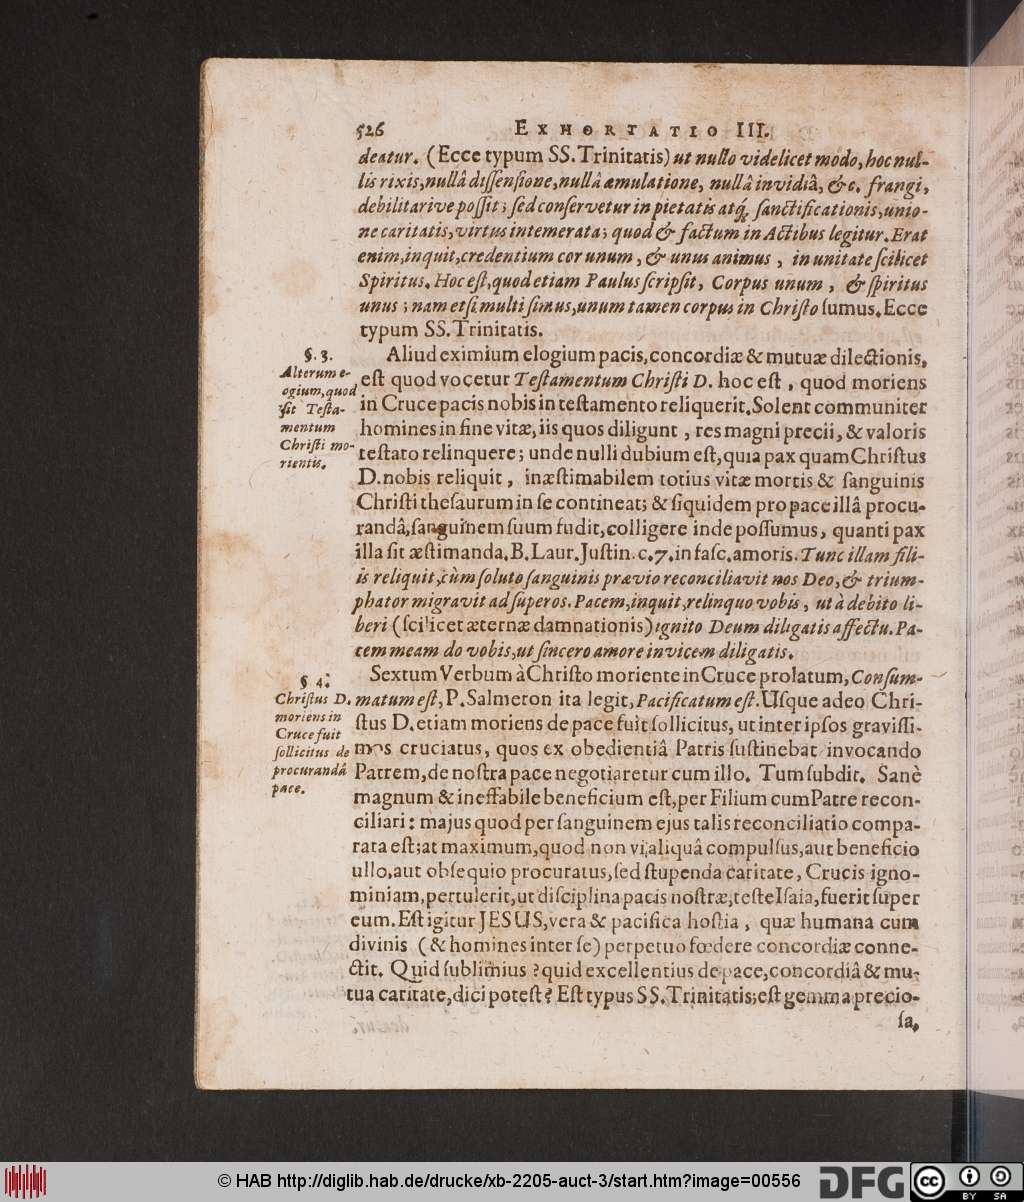 526 EXHORTATIO III.
deatur. (Ecce typum SS. Trinitatis) ut nullo videlicet modo, hoc nul-
lis rixis, nullâ dissensione, nullâ æmulatione, nullâ invidiâ, &c. frangi,
debilitarive possit; sed conservetur in pietatis atq́; sanctificationis, unio-
ne caritatis, virtus intemerata; quod & factum in Actibus legitur. Erat
enim, inquit, credentium cor unum, & unus animus, in unitate scilicet
Spiritus. Hoc est, quod etiam Paulus scripsit, Corpus unum, & spiritus
unus; nam etsi multi simus, unum tamen corpus in Christo sumus. Ecce
typum SS. Trinitatis.
§. 3.
Alterum e-
ogium, quod
sit Testa-
mentum
Christi mo-
rientis.
Aliud eximium elogium pacis, concordiæ & mutuæ dilectionis,
est quod vocetur Testamentum Christi D. hoc est, quod moriens
in Cruce pacis nobis in testamento reliquerit. Solent communiter
homines in fine vitæ, iis quos diligunt, res magni precii, & valoris
testato relinquere; unde nulli dubium est, quia pax quam Christus
D. nobis reliquit, inæstimabilem totius vitæ mortis & sanguinis
Christi thesaurum in se contineat; & siquidem pro pace illâ procu-
randâ, sanguinem suum fudit, colligere inde possumus, quanti pax
illa sit æstimanda. B. Laur. Justin. c. 7. in fasc. amoris. Tunc illam fili-
is reliquit, cùm soluto sanguinis prævio reconciliavit nos Deo, & trium-
phator migravit ad superos. Pacem, inquit, relinquo vobis, ut à debito li-
beri (scilicet æternæ damnationis) ignito Deum diligatis affectu. Pa-
cem meam do vobis, ut sincero amore invicem diligatis.
§ 4.
Christus D.
moriens in
Cruce fuit
sollicitus de
procurandâ
pace.
Sextum Verbum à Christo moriente in Cruce prolatum, Consum-
matum est, P. Salmeron ita legit, Pacificatum est. Usque adeo Chri-
stus D. etiam moriens de pace fuit sollicitus, ut inter ipsos gravissi-
mos cruciatus, quos ex obedientiâ Patris sustinebat invocando
Patrem, de nostra pace negotiaretur cum illo. Tum subdit. Sanè
magnum & ineffabile beneficium est, per Filium cum Patre recon-
ciliari: majus quod per sanguinem ejus talis reconciliatio compa-
rata est; at maximum, quod non vi aliquâ compulsus, aut beneficio
ullo, aut obsequio procuratus, sed stupenda caritate, Crucis igno-
miniam, pertulerit, ut disciplina pacis nostræ, teste Isaia, fuerit super
eum. Est igitur JESUS, vera & pacifica hostia, quæ humana cum
divinis (& homines inter se) perpetuo fœdere concordiæ conne-
ctit. Quid sublimius? quid excellentius de pace, concordiâ & mu-
tua caritate, dici potest? Est typus SS. Trinitatis; est gemma precio-
sa,
© HAB http://diglib.hab.de/drucke/xb-2205-auct-3/start.htm?image=00556
DFG
cc BY SA